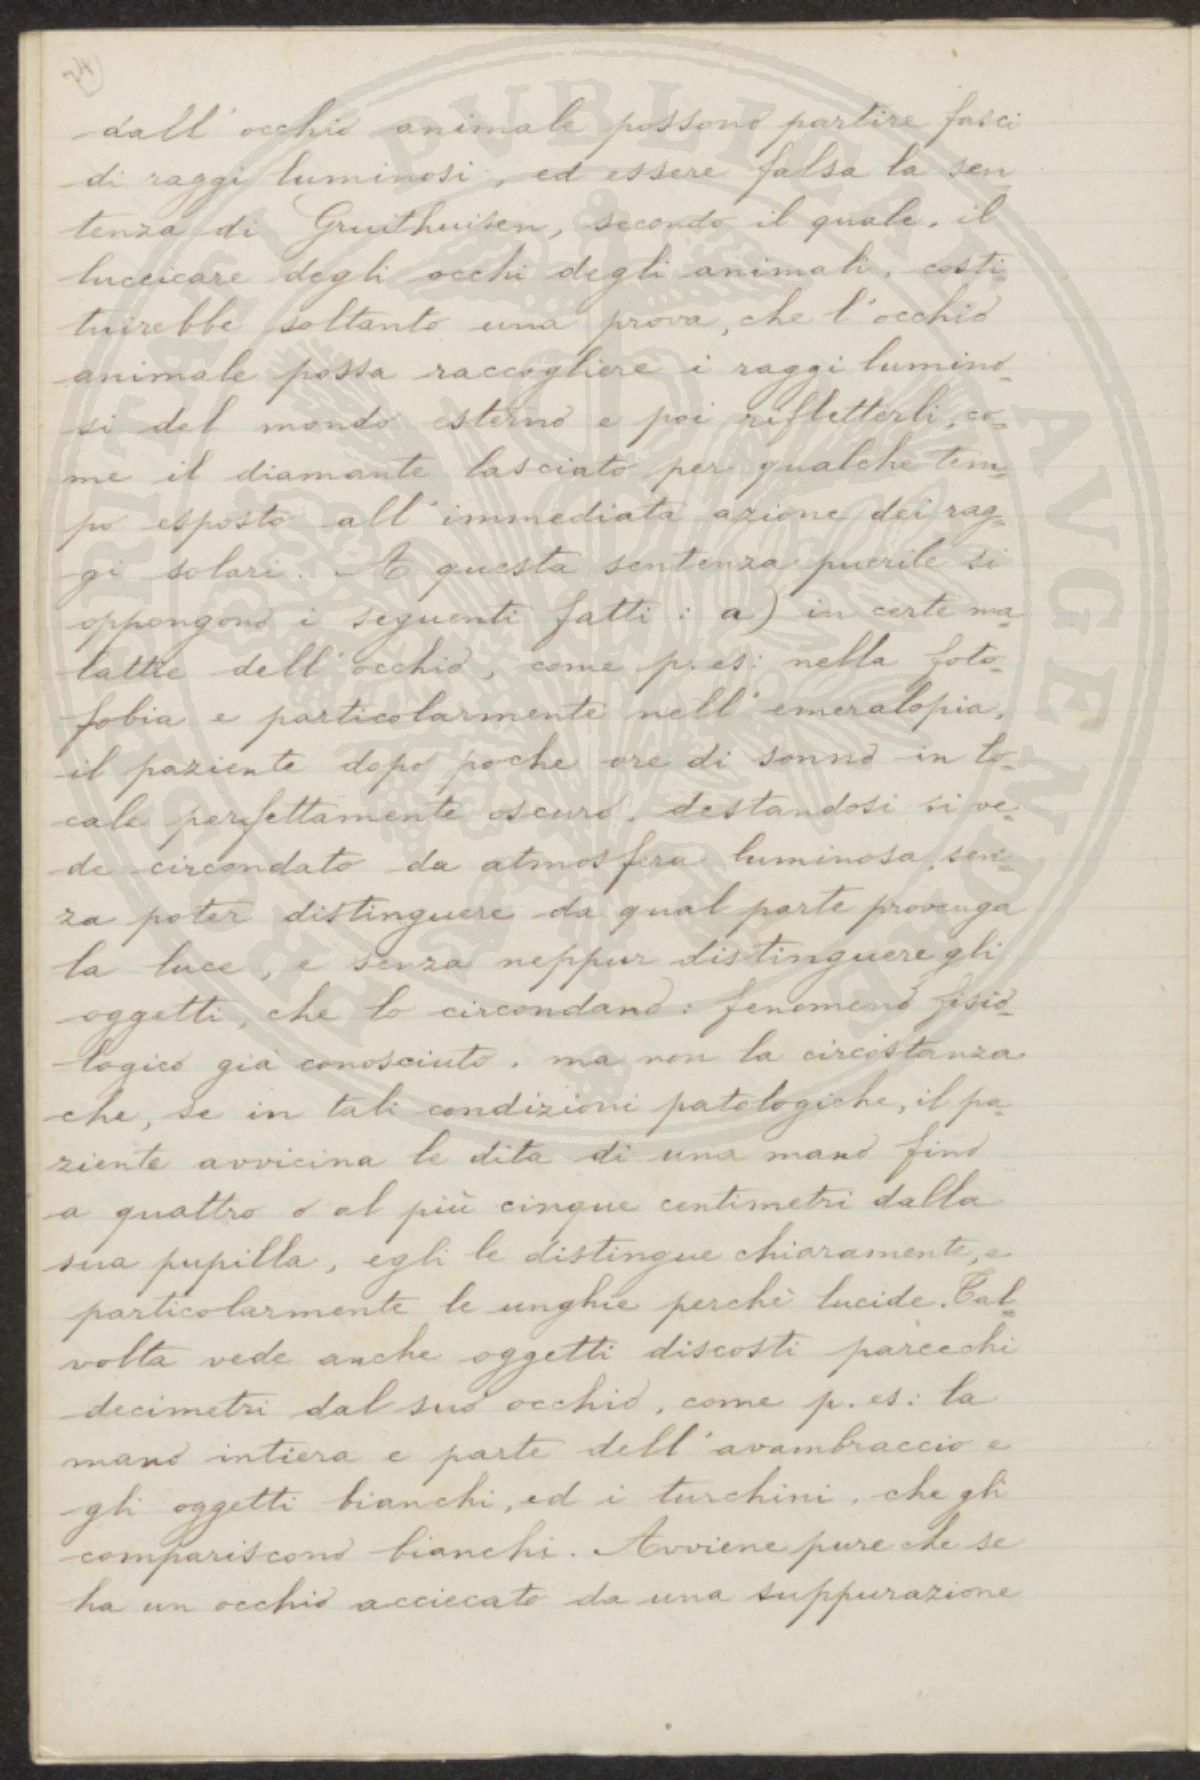 24
dall'occhio animale possono partire fasci
di raggi luminosi, ed essere falsa la sen-
tenza di Gruithuisen, secondo il quale, il
luccicare degli occhi degli animali, costi-
tuirebbe soltanto una prova, che l'occhio
animale possa raccogliere i raggi lumino-
si del mondo esterno e poi rifletterli, co-
me il diamante lasciato per qualche tem-
po esposto all'immediata azione dei rag-
gi solari. A questa sentenza puerile si
oppongono i seguenti fatti: a) in certe ma-
lattie dell'occhio, come p. es: nella foto-
fobia e particolarmente nell'emeralopia,
il paziente dopo poche ore di sonno in lo-
cale perfettamente oscuro, destandosi si ve-
de circondato da atmosfera luminosa, sen-
za poter distinguere da qual parte provenga
la luce, e senza neppur distinguere gli
oggetti, che lo circondano: fenomeno fisio-
logico già conosciuto, ma non la circostanza
che, se in tali condizioni patologiche, il pa-
ziente avvicina le dita di una mano fino
a quattro o al più cinque centimetri dalla
sua pupilla, egli le distingue chiaramente, e
particolarmente le unghie perchè lucide. Tal-
volta vede anche oggetti discosti parecchi
decimetri dal suo occhio, come p. es: la
mano intiera e parte dell'avambraccio e
gli oggetti bianchi, ed i turchini, che gli
compariscono bianchi. Avviene pure che se
ha un occhio acciecato da una suppurazione